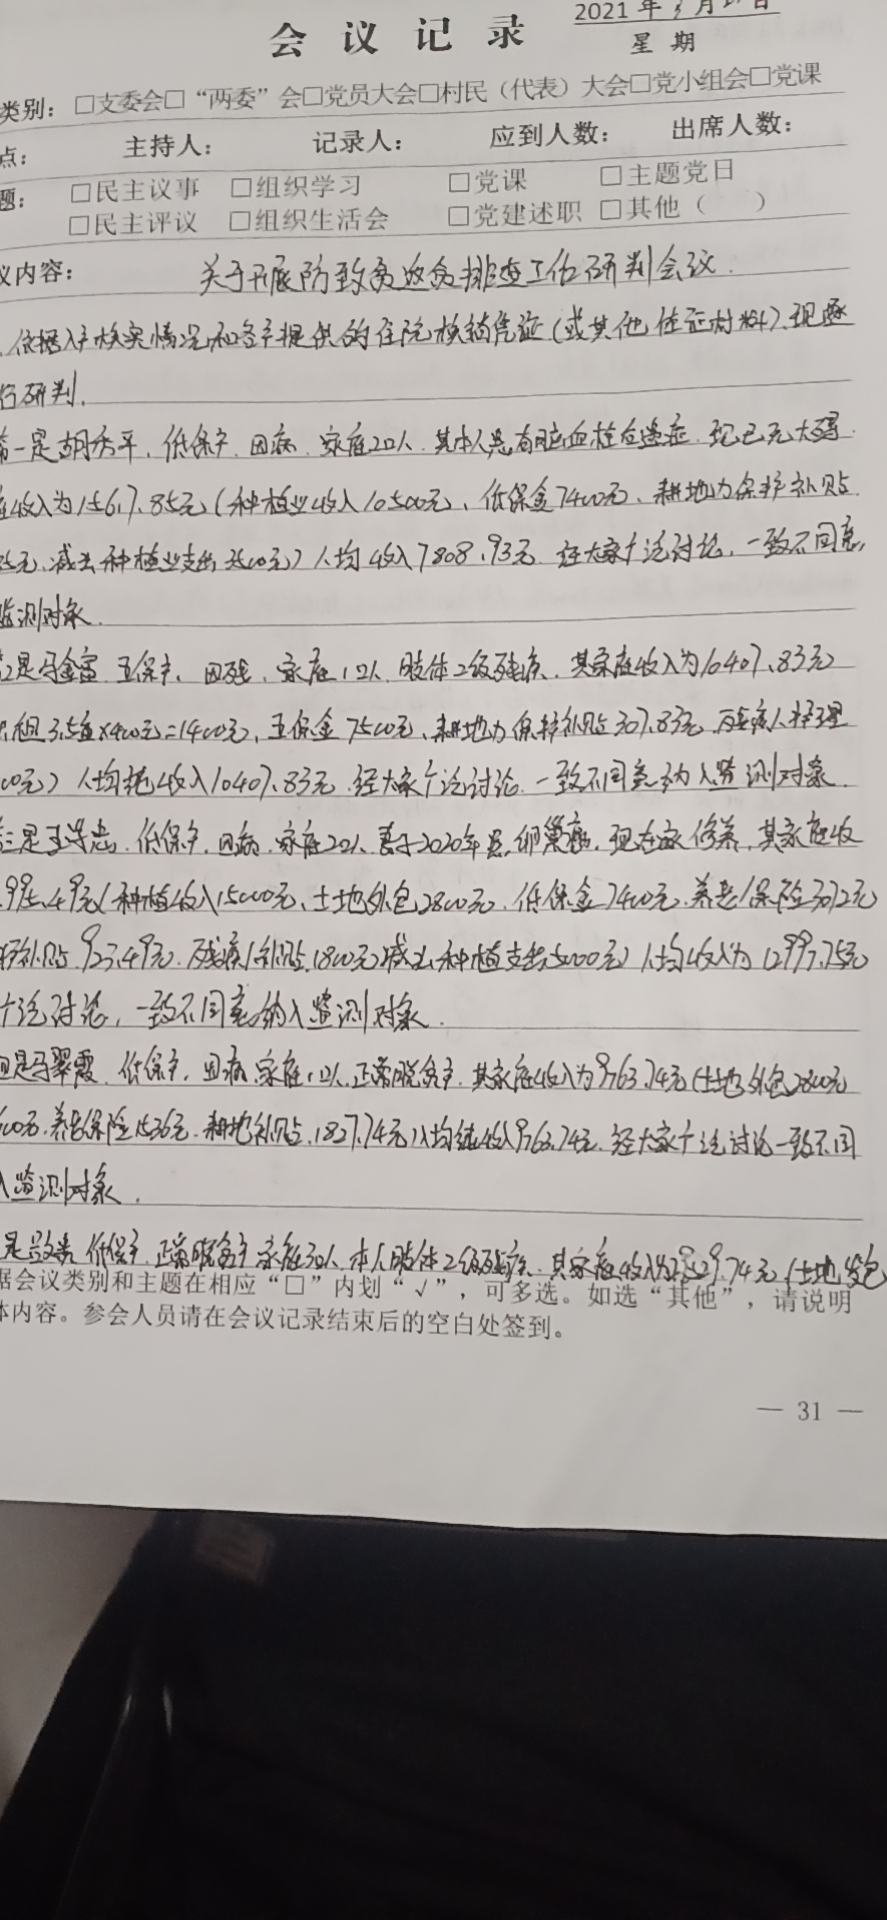 2021年3月 日
会议记录
星期
类别：□支委会□“两委”会□党员大会□村民（代表）大会□党小组会□党课
点： 主持人： 记录人： 应到人数： 出席人数：
题： □民主议事 □组织学习 □党课 □主题党日
□民主评议 □组织生活会 □党建述职 □其他（ ）
议内容： 关于开展防致贫返贫排查工作研判会议.
依据入户核实情况和各户提供的住院核销凭证(或其他佐证材料).现逐
行研判.
第一是胡秀平.低保户.因病.家庭2口人.其本人患有脑血栓后遗症.现已无大碍.
收入为15617.85元(种植业收入10500元、低保金7400元、耕地力保护补贴
元.减去种植业支出3500元)人均收入7808.93元.经大家广泛讨论,一致不同意,
监测对象.
2是马金富.五保户、因残、家庭1口人.肢体2级残疾.其家庭收入为10407.83元
租3.5亩×400元=1400元,五保金7500元、耕地力保护补贴307.83元.残疾人护理
00元)人均纯收入10407.83元.经大家广泛讨论.一致不同意纳入监测对象.
三是王 忠.低保户.因病.家庭2口人.妻于2020年患,卵巢癌,现在家修养,其家庭收
995.49元(种植收入15000元、土地外包2800元.低保金7400元.养老保险3072元
护补贴923.49元.残疾人补贴1800元减去种植支出5000元)人均收入为12997.75元
广泛讨论,一致不同意纳入监测对象.
四是马翠霞.低保户.因病.家庭1口人.正常脱贫户.其家庭收入为9763.74元(土地外包2800元
00元.养老保险1536元.耕地补贴1827.74元)人均纯收入9763.74元.经大家广泛讨论一致不同
入监测对象.
是 低保户.正常脱贫户.家庭3口人.本人肢体2级残疾.其家庭收入为 529.74元(土地发包
据会议类别和主题在相应“□”内划“√”，可多选。如选“其他”，请说明
体内容。参会人员请在会议记录结束后的空白处签到。
— 31 —